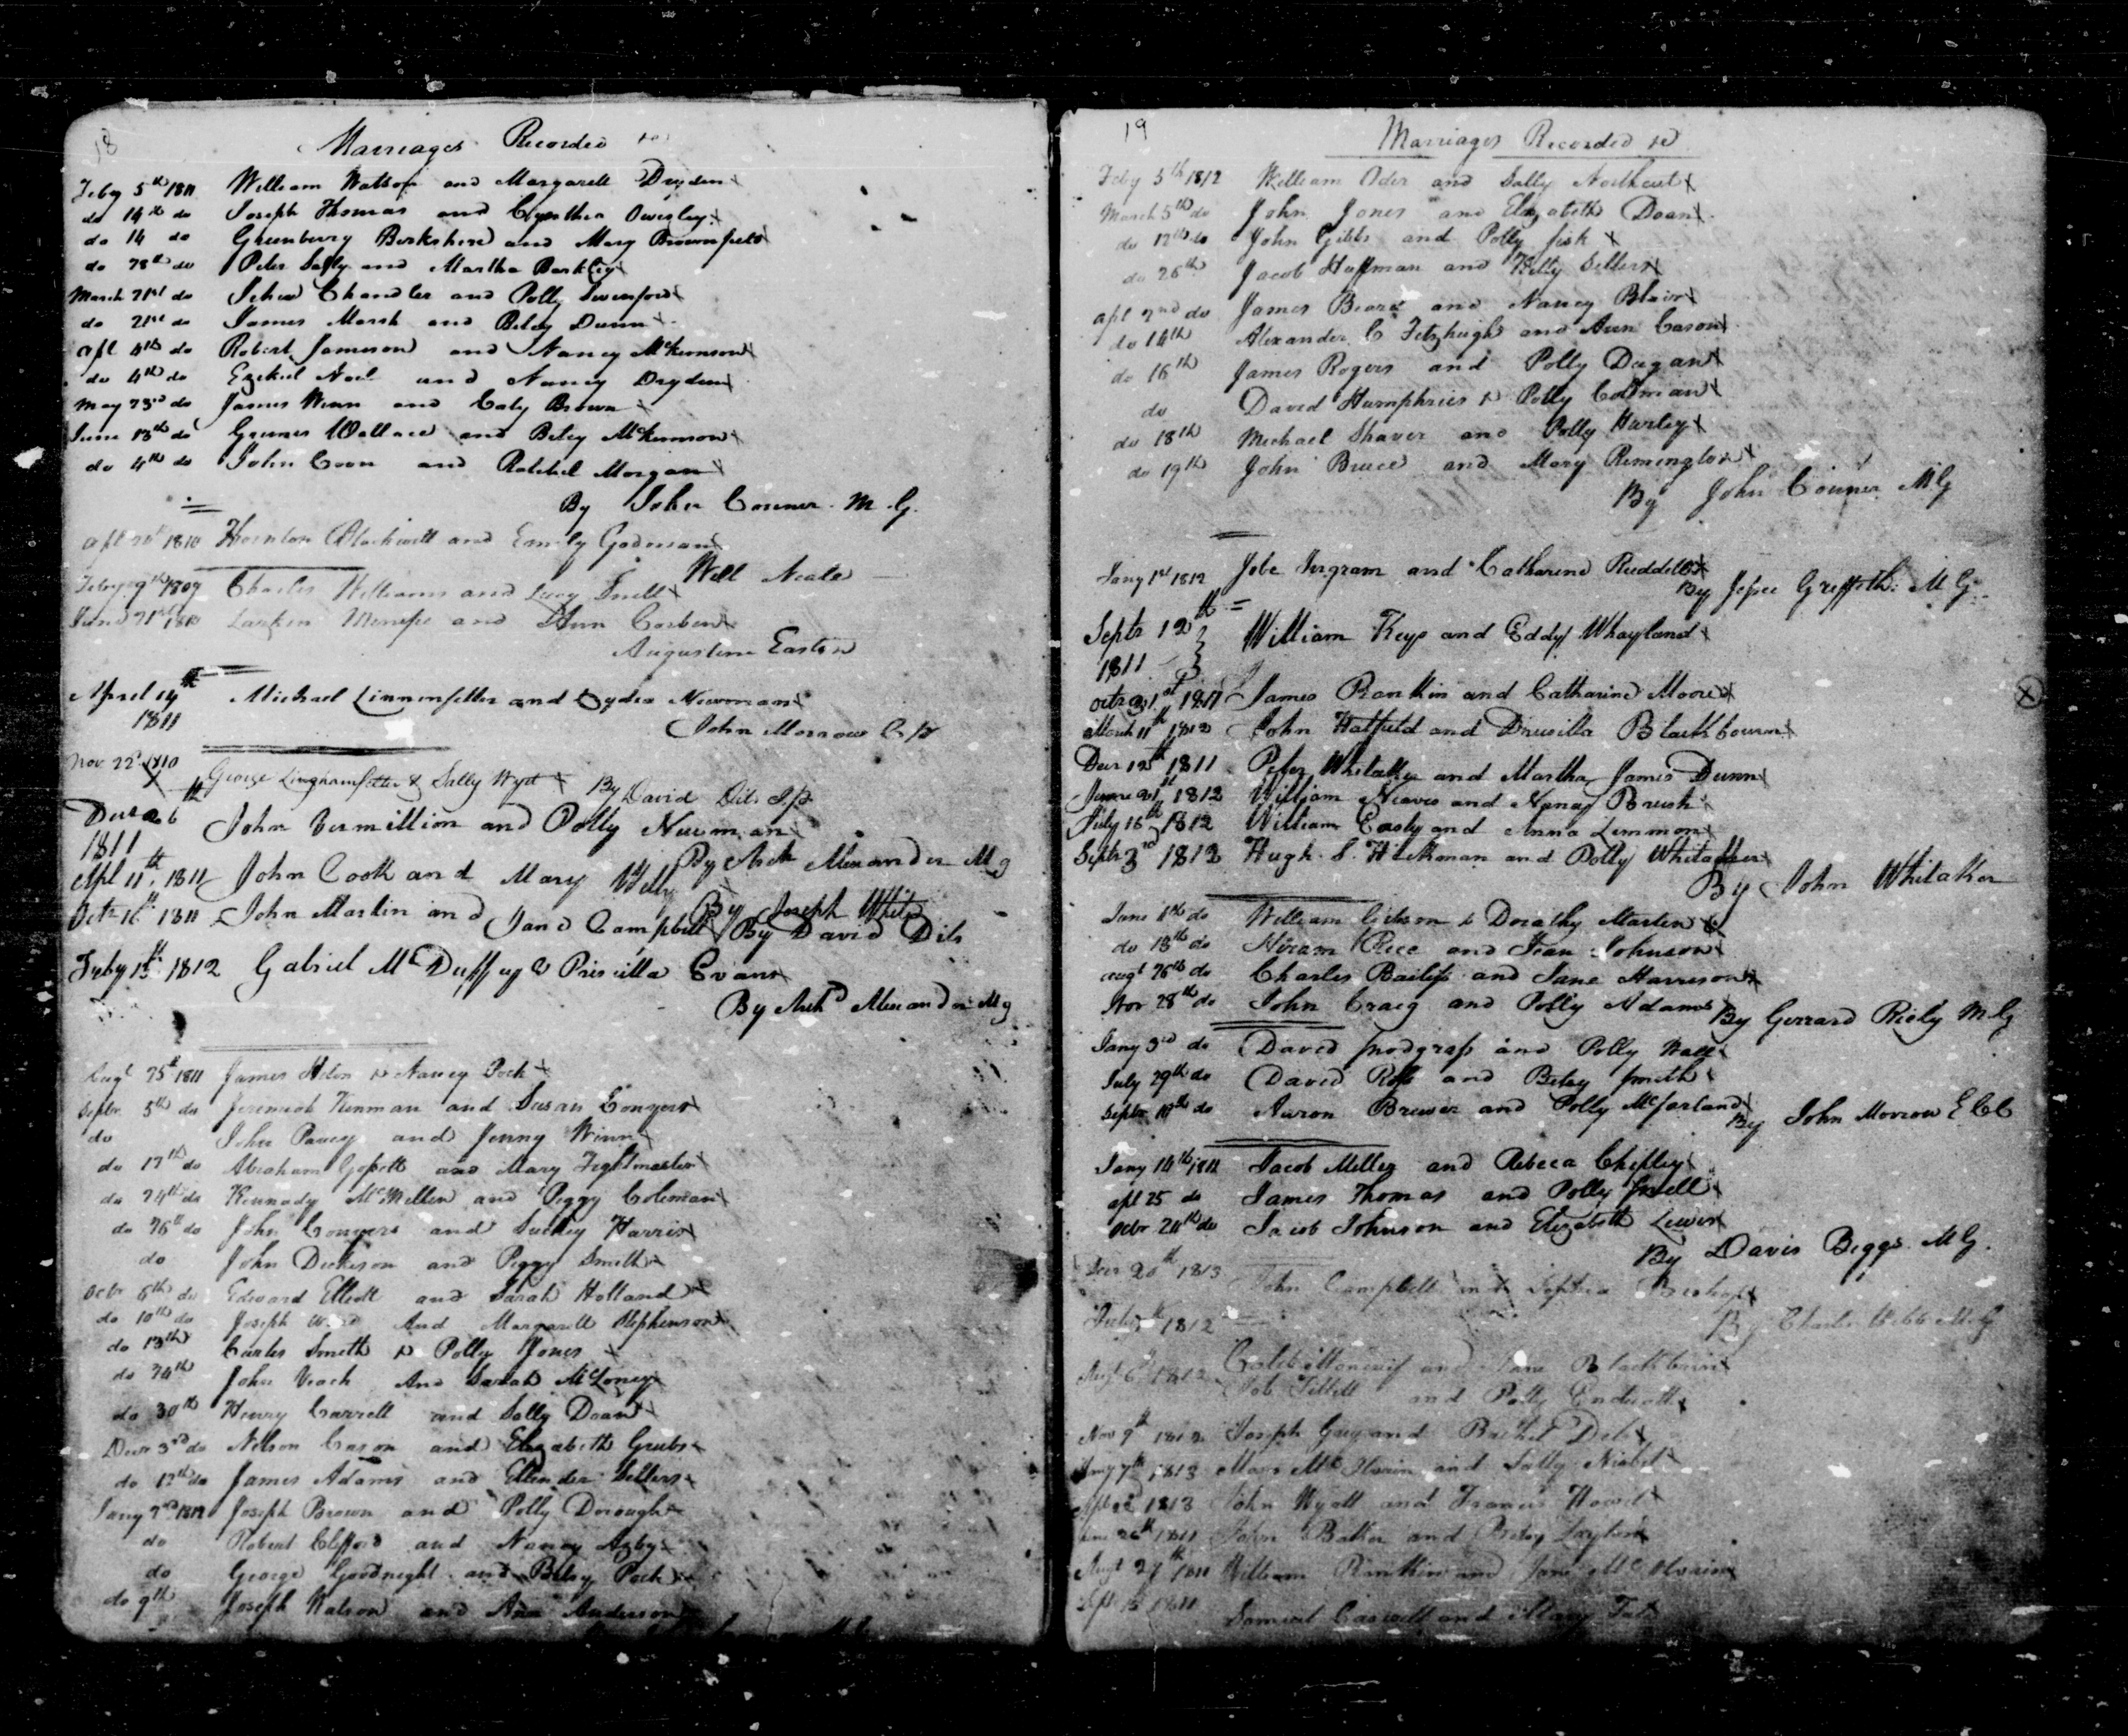 18
Marriages Recorded &c
Feby 5th 1811 William Watson and Margarett Dryden x
do 14th do Joseph Thomas and Cynthia Owsley x
do 14 do Greenberry Berkshire and Mary Brownfield
do 28th do Peter and Martha Barkley x
March 21st do Chandler and Polly Swinford x
do 21st do James Marsh and Betsy Dunn x
Apl 4th do Robert Jameson and Nancy McKinnson x
do 4th do Ezekiel Noel and Nancy Dryden x
May 23rd do James Winn and Caty Brown x
June 13th do Wallace and Betsy McKinnson x
do 4th do John Coon and Rachel Morgan x
By John Conner M.G.
Apl 1810 Thornton Blackwell and Emily Godman x
Will Neale
Feby 9th 1809 Charles Williams and Lucy Snell x
June 21st 1810 Larkin and Ann Corbin x
Augustine Easton
April 14th Michael Linnenfelter and Lydia Newman x
1811
John Morrow
Nov. 22d 1810 George Linghamfelter & Sally Wyet x By David Dils J.P.
Decr 26th John Vermillion and Polly Newman x
1811
By Arch Alexander Mg
Apl 11th 1811 John Cook and Mary x
By Joseph White
Octr 16th 1811 John Martin and Jane Campbell x By David Dils
Feby 13th 1812 Gabriel McDuffy & Priscilla Evans x
By Archd Alexander Mg
Augt 25th 1811 James & Nancy Pock x
Septr 5th do Jeremiah Kinman and Susan Conyers x
do John and Jenny Winn x
do 17th do Abraham Gossett and Mary Fightmaster x
do 24th do Kennady McMillen and Peggy Coleman x
do 26th do John Conyers and Harris x
do John Dickison and Peggy Smith x
Octr 8th do Edward Elliott and Sarah Holland x
do 10th do Joseph And Margarett Stephenson x
do 13th Carter Smith & Polly Jones x
do 24th John Veach And Sarah McLoney x
do 30th Henry Garrett and Sally Doan x
Decr 3rd do Nelson Cason and Elizabeth Grubs x
do 12th do James Adams and Ellender Sellers x
Jany 2nd 1812 Joseph Brown and Polly Dorough x
do Robert Clifford and Nancy x
do George Goodnight and Betsy Pock x
do 9th Joseph Watson and Ann Anderson
19
Marriages Recorded &c
Feby 5th 1812 William Oder and Sally Northcut x
March 5th do John Jones and Elizabeth Doan x
do 12th do John Gibbs and Polly fisk x
do 26th Jacob Huffman and Kitty Sellers x
Apl 2nd do James Beard and Nancy Blair x
do 14th Alexander C Fitzhugh and Ann Cason x
do 16th James Rogers and Polly Dugan x
do David Humphries & Polly Coleman x
do 18th Michael Shaver and Polly Hurley x
do 19th John Bruce and Mary Remington x
By John Conner MG
Jany 1st 1812 Jobe Ingram and Catharine Ruddell x
By Jesse Griffith MG
Septr 12th William Keys and Eddy Whayland x
1811
Octr 31st 1811 James Rankin and Catharine Moore x
March 11th 1812 John Hatfield and Drusilla Blackbourn x
Decr 12th 1811 Peter Whitaker and Martha James Dunn x
June 21st 1812 William Neaves and Nancy Brush x
July 16th 1812 William Easly and Anna Lemmon x
Septr 3rd 1812 Hugh S. Hickman and Polly Whitaker x
By John Whitaker
June 6th do William Gibson & Dorathy Martin x
do 18th do Hiram Rice and Jean Johnson x
Augt 26th do Charles Bailiss and Jane Harrison x
Nov 28th do John Craig and Polly Adams x By Gerrard Riely MG
Jany 3rd do David Snodgrass and Polly Wall x
July 29th do David Ross and Betsy Smith x
Septr 10th do Aaron Brewer and Polly McFarland x
By John Morrow
Jany 14th 1811 Jacob Miller and Rebeca Chipley x
Apl 25 do James Thomas and Polly Snell x
Octr 24th do Jacob Johnson and Elizabeth Lewis x
By Davis Biggs MG.
20th 1813 John Campbell and Sophia Bishop x
By Charles Webb MG
1812 Caleb and Jane Blackburn x
Augt 6th 1812 Job Tillett and Polly Endicott x
Nov 9th 1812 Joseph Gray and Rachel Dils x
Jany 7th 1813 and Sally Nisbet x
Apl 22d 1813 John Wyatt and Frances x
26th 1811 John Baker and Betsy x
Augt 27th 1811 William Rankin and Jane x
Sept 12 1811 Samuel Caswell and Mary